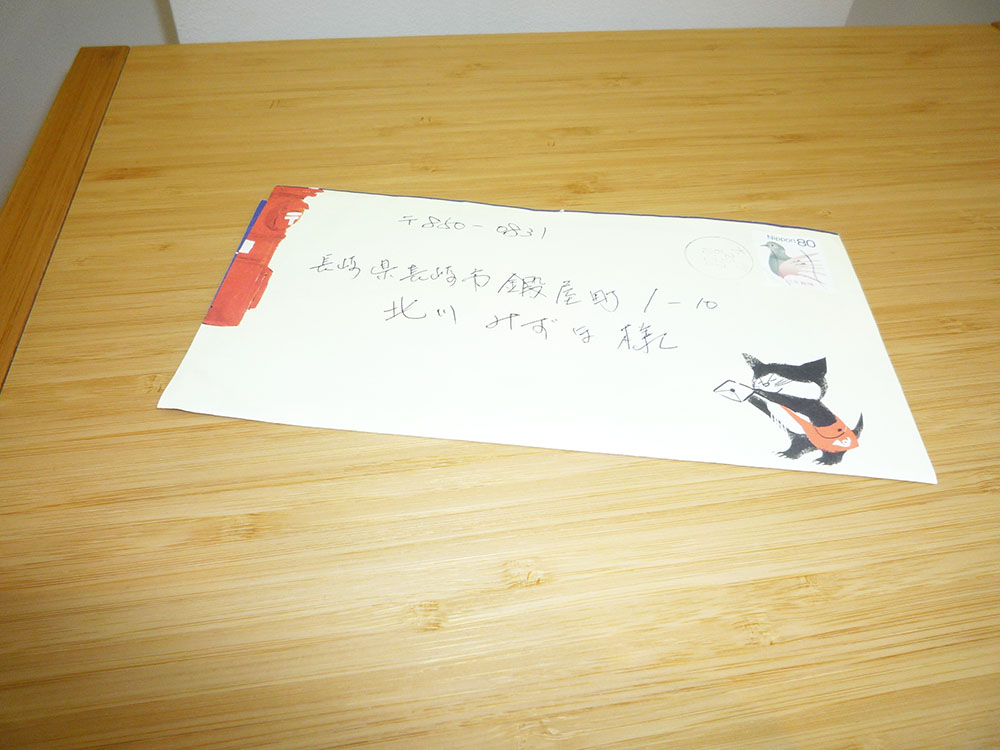 〒850-0831
長崎県長崎市鍛屋町1-10
北川 みずほ 様
NIPPON 80